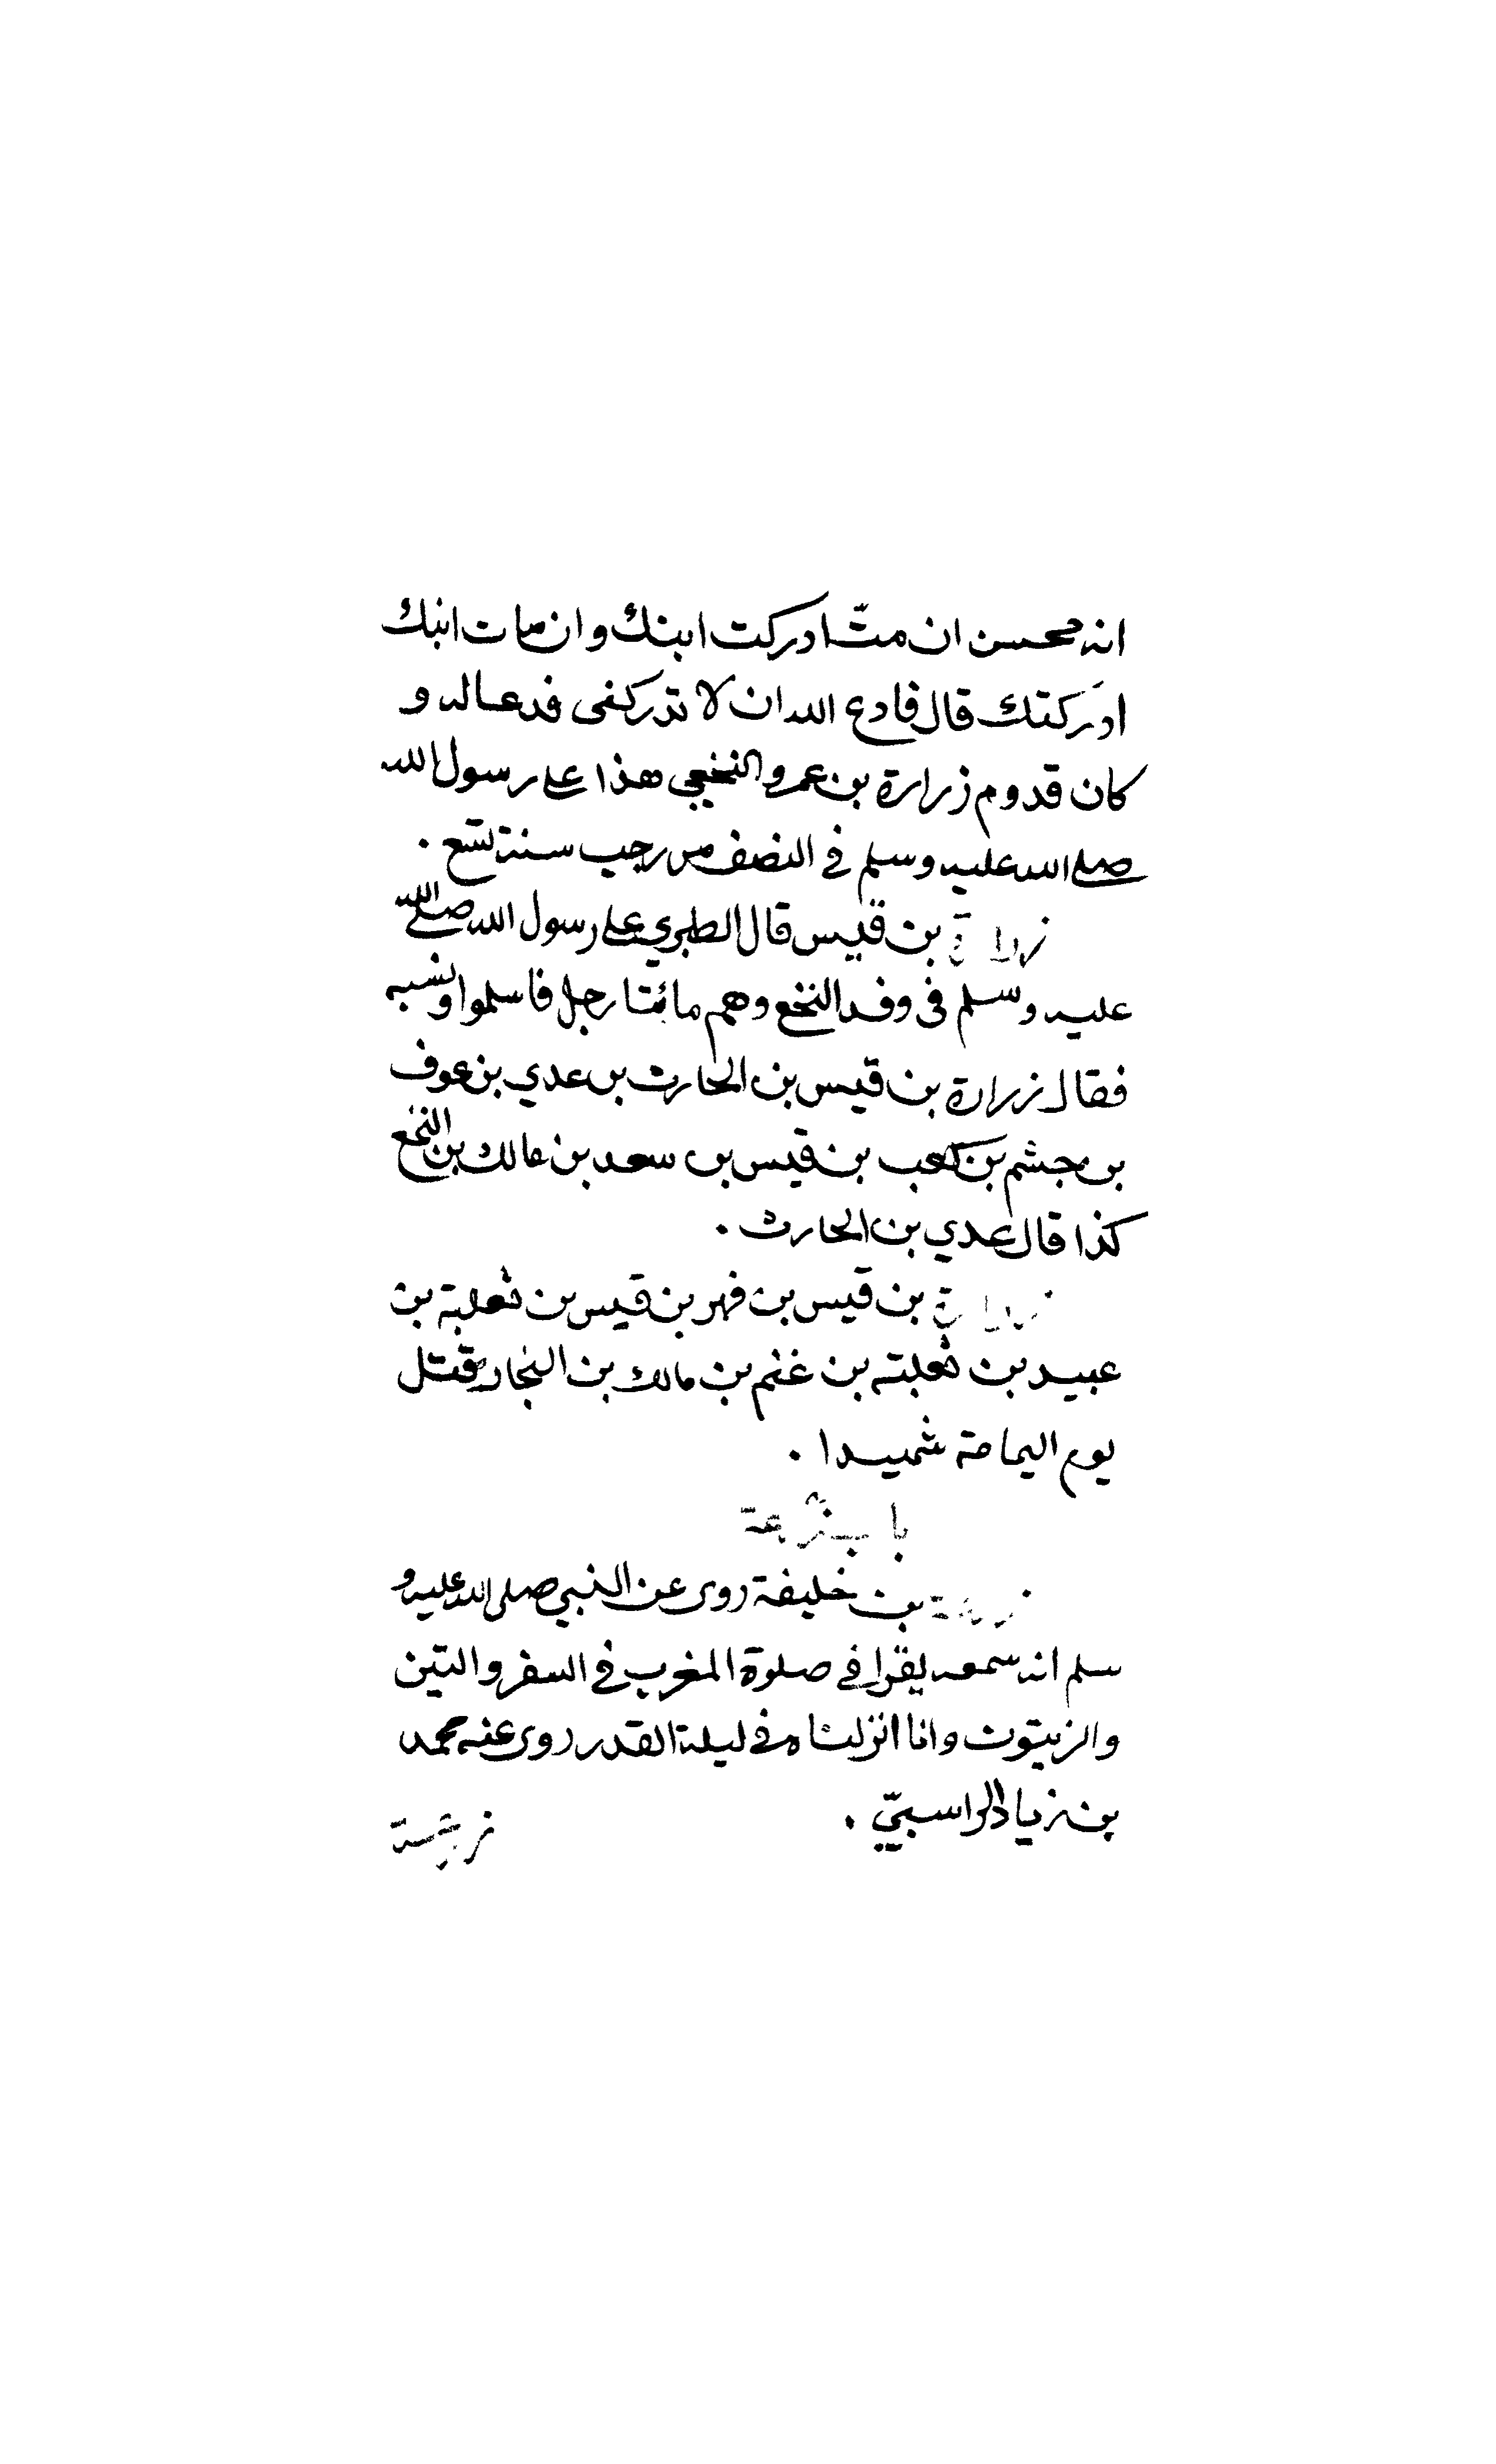 انه محسن ان متّ ادركت ابنك وان مات ابنك
ادركتك قال فادع الله ان لا تدركنى فدعا له و
كان قدوم زرارة بن عمرو النخعي هذا على رسول الله
صلى الله عليه وسلم في النصف من رجب سنة تسع .
زرارة بن قيس قال الطبري على رسول الله صلى الله
عليه وسلم فى وفد النخع وهم مائتا رجل فاسلموا ونسبه
فقال زرارة بن قيس بن الحارث بن عدي بن عوف
بن جشم بن كعب بن قيس بن سعد بن مالك بن النخع
كذا قال عدي بن الحارث .
زرارة بن قيس بن فهر بن قيس بن ثعلبة بن
عبيد بن ثعلبة بن غنم بن مالك بن النجار قتل
يوم اليمامة شهيدا .
باب زرعة
زرعة بن خليفة روى عن النبي صلى الله عليه و
سلم انه سمعه يقرا في صلوة المغرب في السفر والتين
والزيتون وانا انزلناه في ليلة القدر روى عنه محمد
بن زياد الراسبيّ .